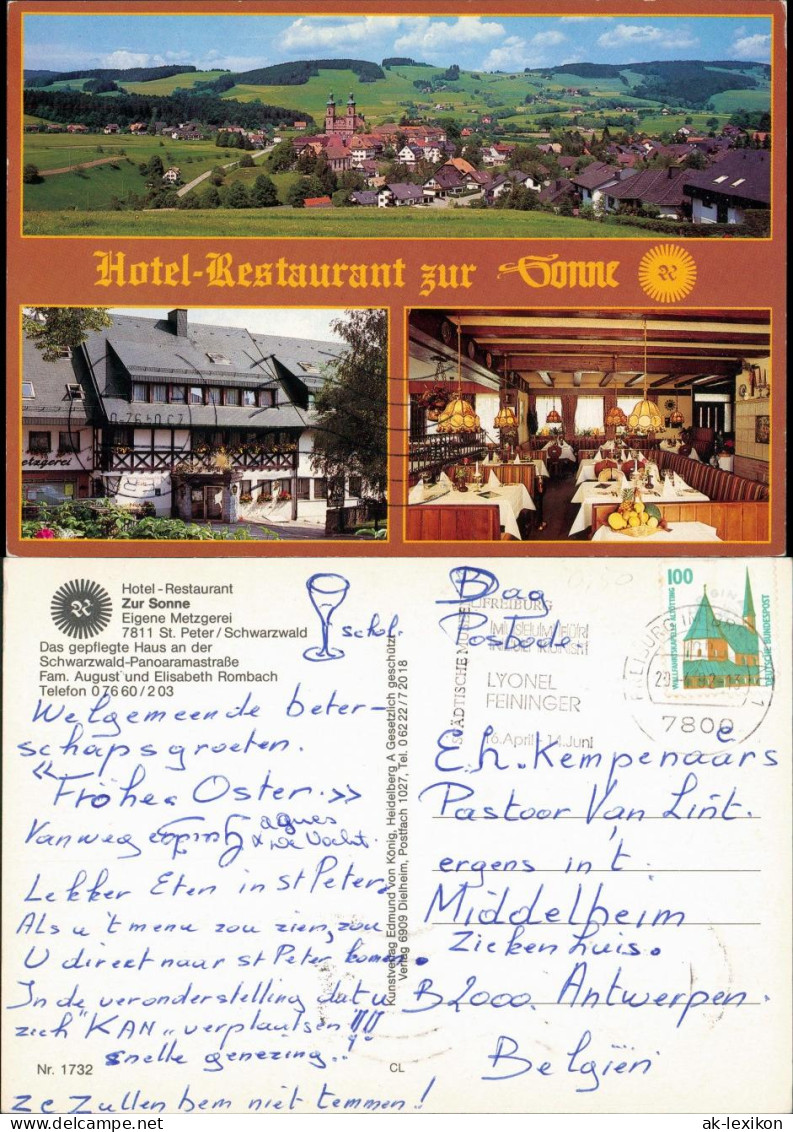 Hotel-Restaurant zur Sonne
R
etzgerei
Hotel-Restaurant
Zur Sonne
Eigene Metzgerei
7811 St. Peter/Schwarzwald
Das gepflegte Haus an der
Schwarzwald-Panoaramastraße
Fam. August und Elisabeth Rombach
Telefon 07660/203
schol.
Welgemeende beter-
schapsgroeten.
"Fröhe Oster."
Vanweg agnes
& De Vocht.
Lekker Eten in St Peter.
Als u 't menu zou zien, zou
U direct naar st Peter komen.
In de veronderstelling dat u
zich "KAN" verplaatsen !!!
snelle genezing..!
Ze zullen hem niet temmen!
Nr. 1732
CL
Kunstverlag Edmund von König, Heidelberg A Gesetzlich geschützt
Verlag 6909 Dielheim, Postfach 1027, Tel. 06222/72018
Dag
Postode.
STÄDTISCHE MUSEEN
FREIBURG
MUSEUM FÜR
NEUE KUNST
LYONEL
FEININGER
16. April - 14. Juni
FREIBURG IM BREISGAU 1
7800
100
WALLFAHRTSKAPELLE ALTÖTTING
DEUTSCHE BUNDESPOST
E.h. Kempenaars
Pastoor Van Lint.
ergens in 't
Middelheim
Ziekenhuis.
B2000. Antwerpen.
Belgiën
ak-lexikon